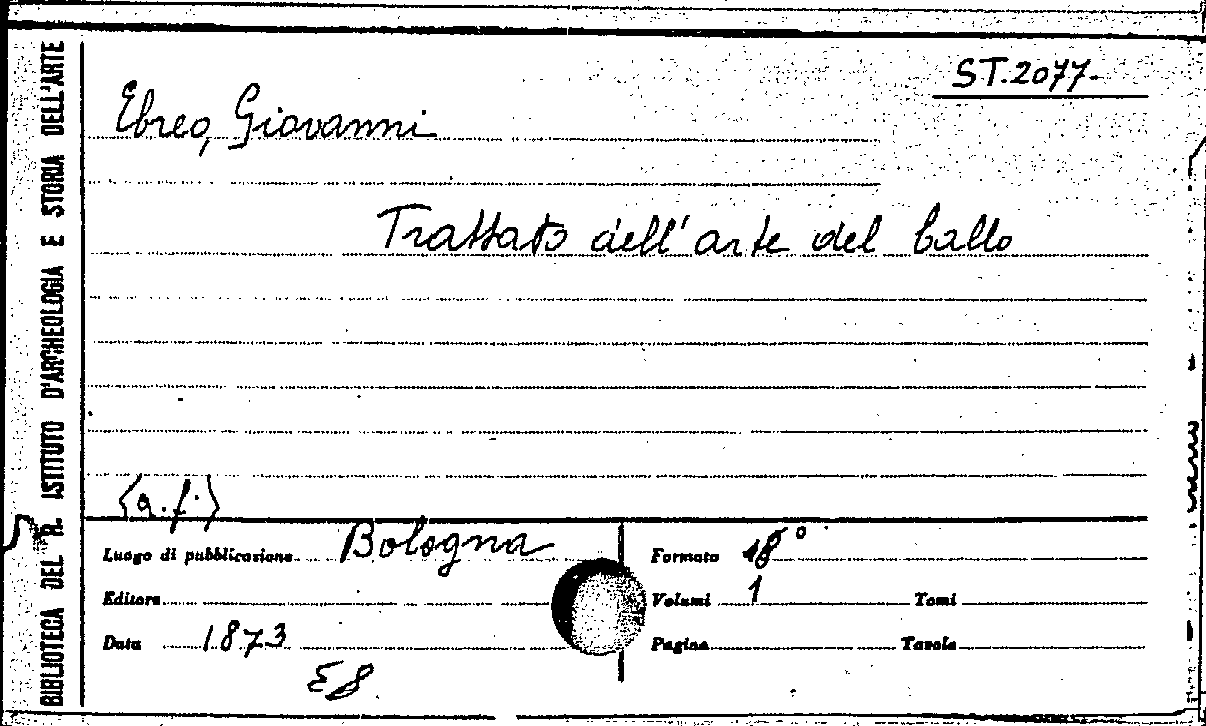 BIBLIOTECA DEL R. ISTITUTO D'ARCHEOLOGIA E STORIA DELL'ARTE
ST.2077.
Ebreo, Giovanni
Trattato dell'arte del ballo
(a.f.)
Luogo di pubblicazione Bologna
Formato 18°
Editore
Volumi 1 Tomi
Data 1873
Pagine Tavole